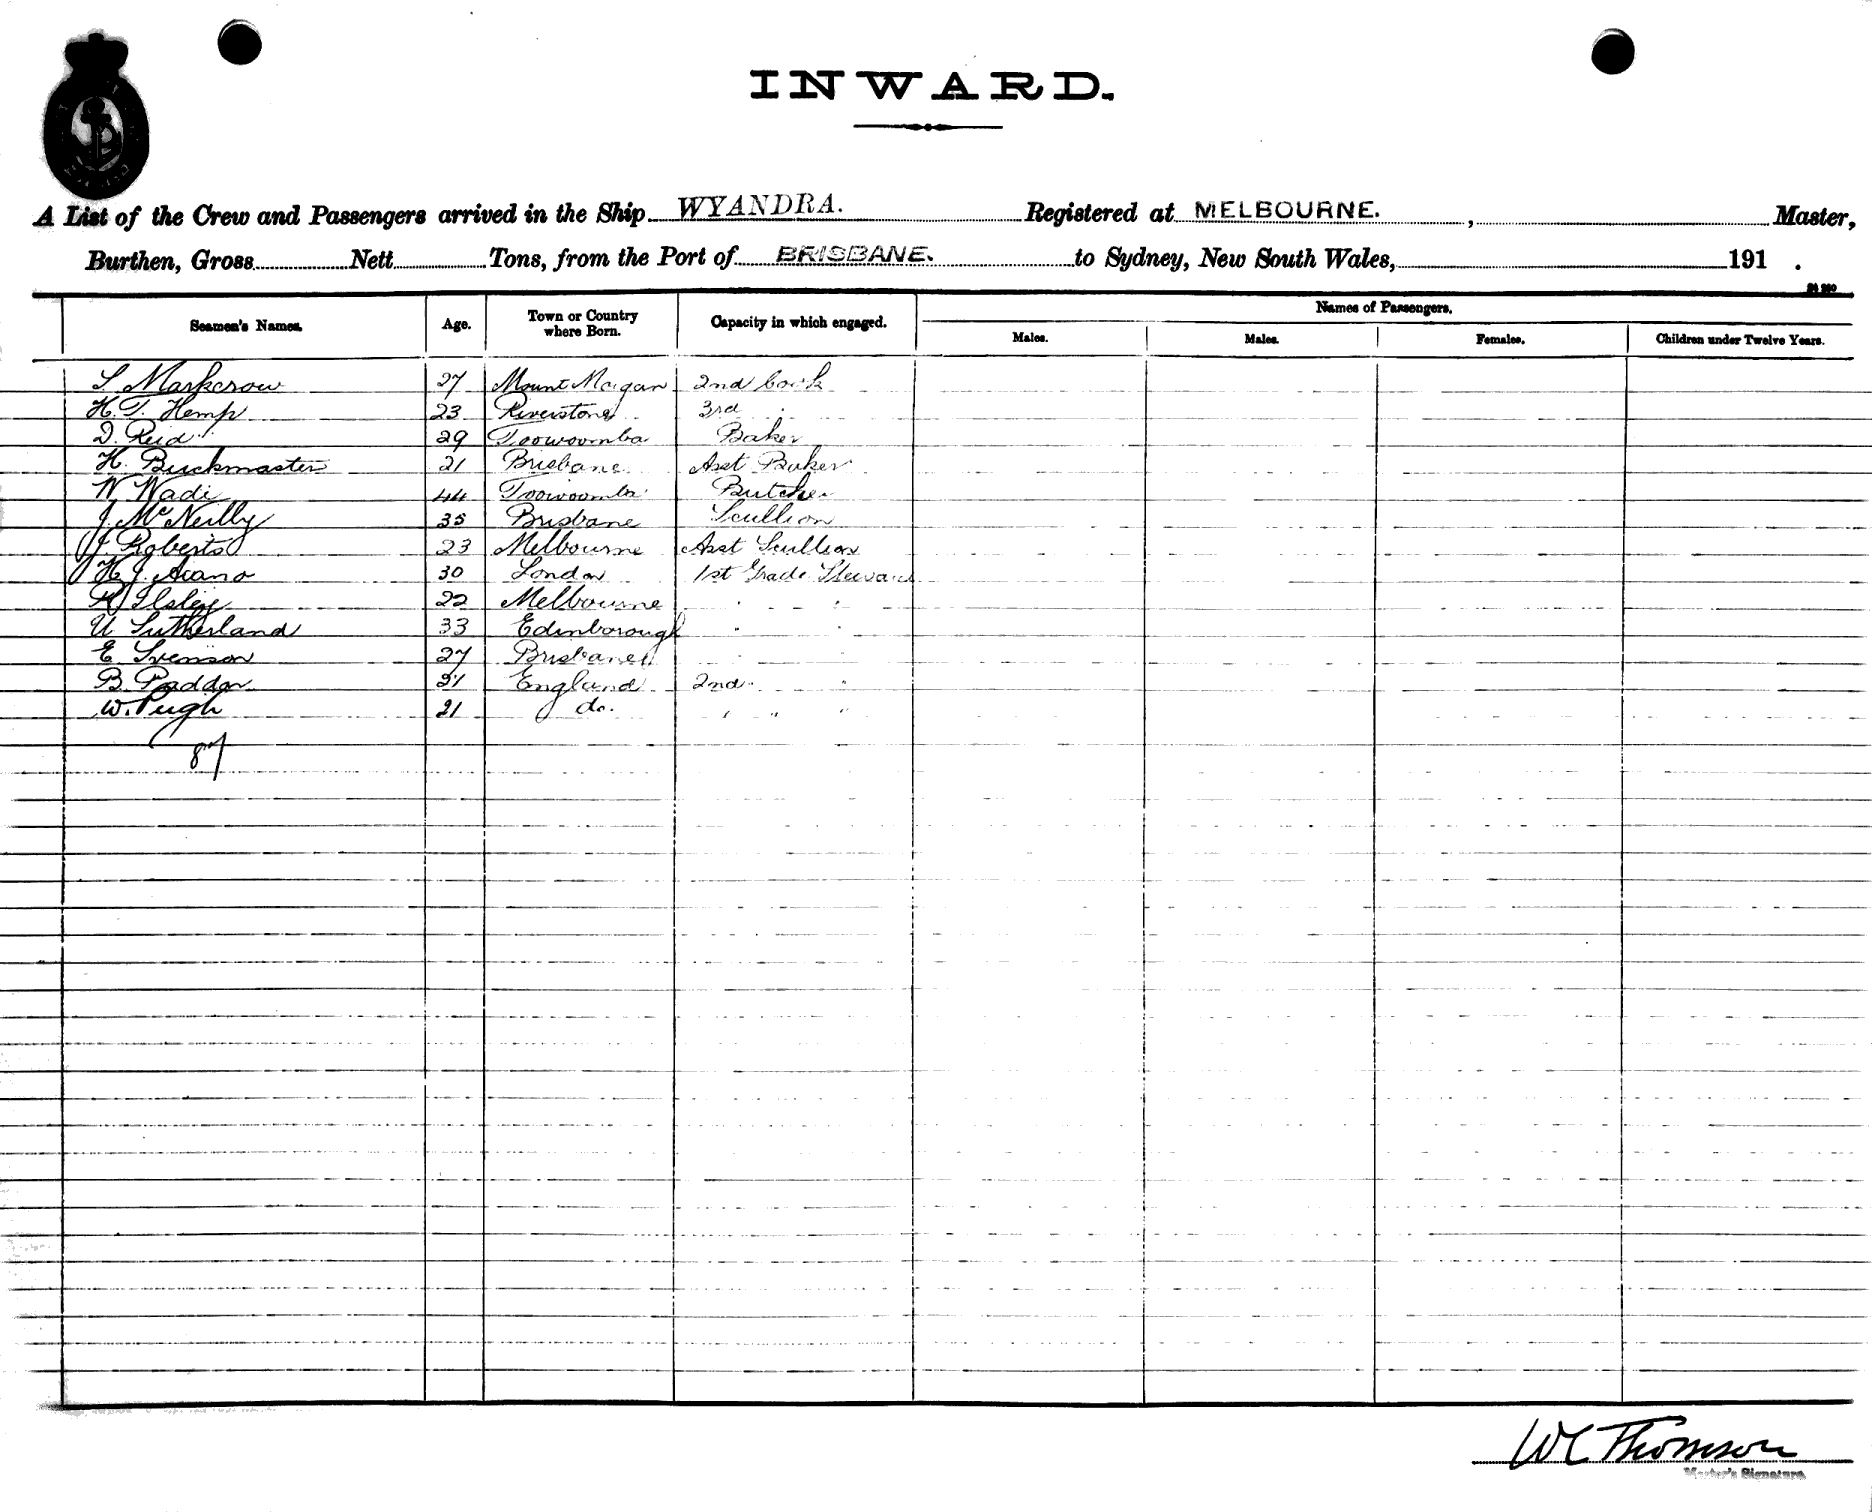 INWARD.
A List of the Crew and Passengers arrived in the Ship WYANDRA. Registered at MELBOURNE. , Master,
Burthen, Gross Nett Tons, from the Port of BRISBANE. to Sydney, New South Wales, 191 .
Names of Passengers.
Seamen's Names. Age. Town or Country where Born. Capacity in which engaged. Males. Males. Females. Children under Twelve Years.
S Markcrow 27 Mount Morgan 2nd Cook
H. T. Hemp 23 Riverstone 3rd "
D. Reid 29 Toowoomba Baker
H. Buckmaster 21 Brisbane Asst Baker
W Wade 44 Toowoomba Butcher
J. McNeilly 35 Brisbane Scullion
J. Roberts 23 Melbourne Asst Scullion
H J. Aiano 30 London 1st Grade Steward
Ilsley 22 Melbourne " "
U Sutherland 33 Edinborough " "
E Svenson 27 Brisbane " "
B. 21 England 2nd " "
W. Pugh 21 do. " " "
87
WC Thomson
Master's Signature.